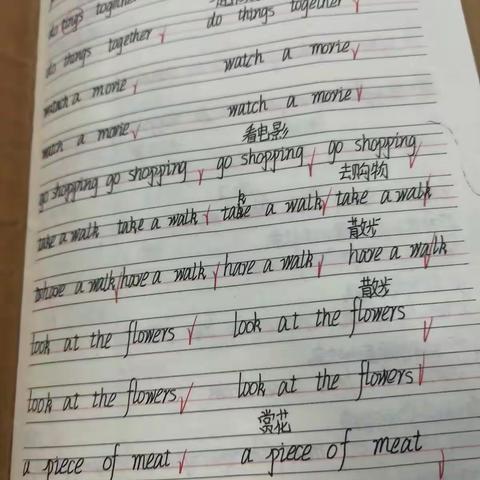 do tings together
do things together do things together
watch a movie watch a movie
watch a movie watch a movie
看电影
go shopping go shopping go shopping go shopping
去购物
take a walk take a walk take a walk take a walk
散步
have a walk have a walk have a walk have a walk
散步
look at the flowers look at the flowers
look at the flowers look at the flowers
赏花
a piece of meat a piece of meat